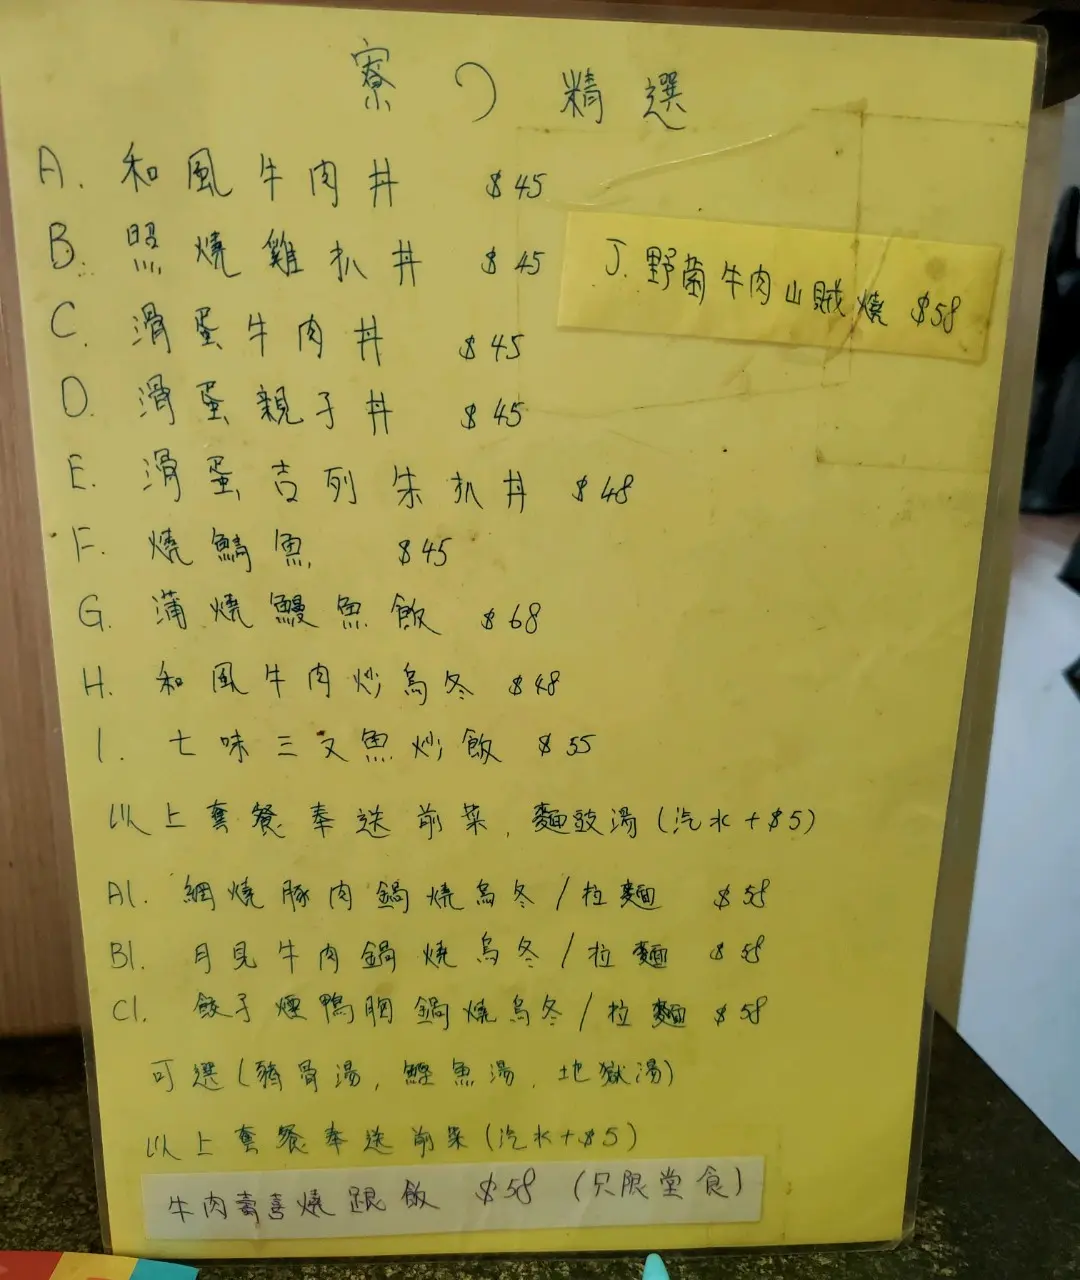 寮つ精選
A. 和風牛肉丼 $45
B. 照燒雞扒丼 $45
J. 野菌牛肉山賊燒 $58
C. 滑蛋牛肉丼 $45
D. 滑蛋親子丼 $45
E. 滑蛋吉列朱扒丼 $48
F. 燒鯖魚 $45
G. 蒲燒鰻魚飯 $68
H. 和風牛肉炒烏冬 $48
I. 七味三文魚炒飯 $55
以上套餐奉送前菜, 麵豉湯 (汽水+$5)
A1. 網燒豚肉鍋燒烏冬/拉麵 $58
B1. 月見牛肉鍋燒烏冬/拉麵 $58
C1. 餃子煙鴨胸鍋燒烏冬/拉麵 $58
可選 (豬骨湯, 鰹魚湯, 地獄湯)
以上套餐奉送前菜 (汽水+$5)
牛肉壽喜燒跟飯 $58 (只限堂食)